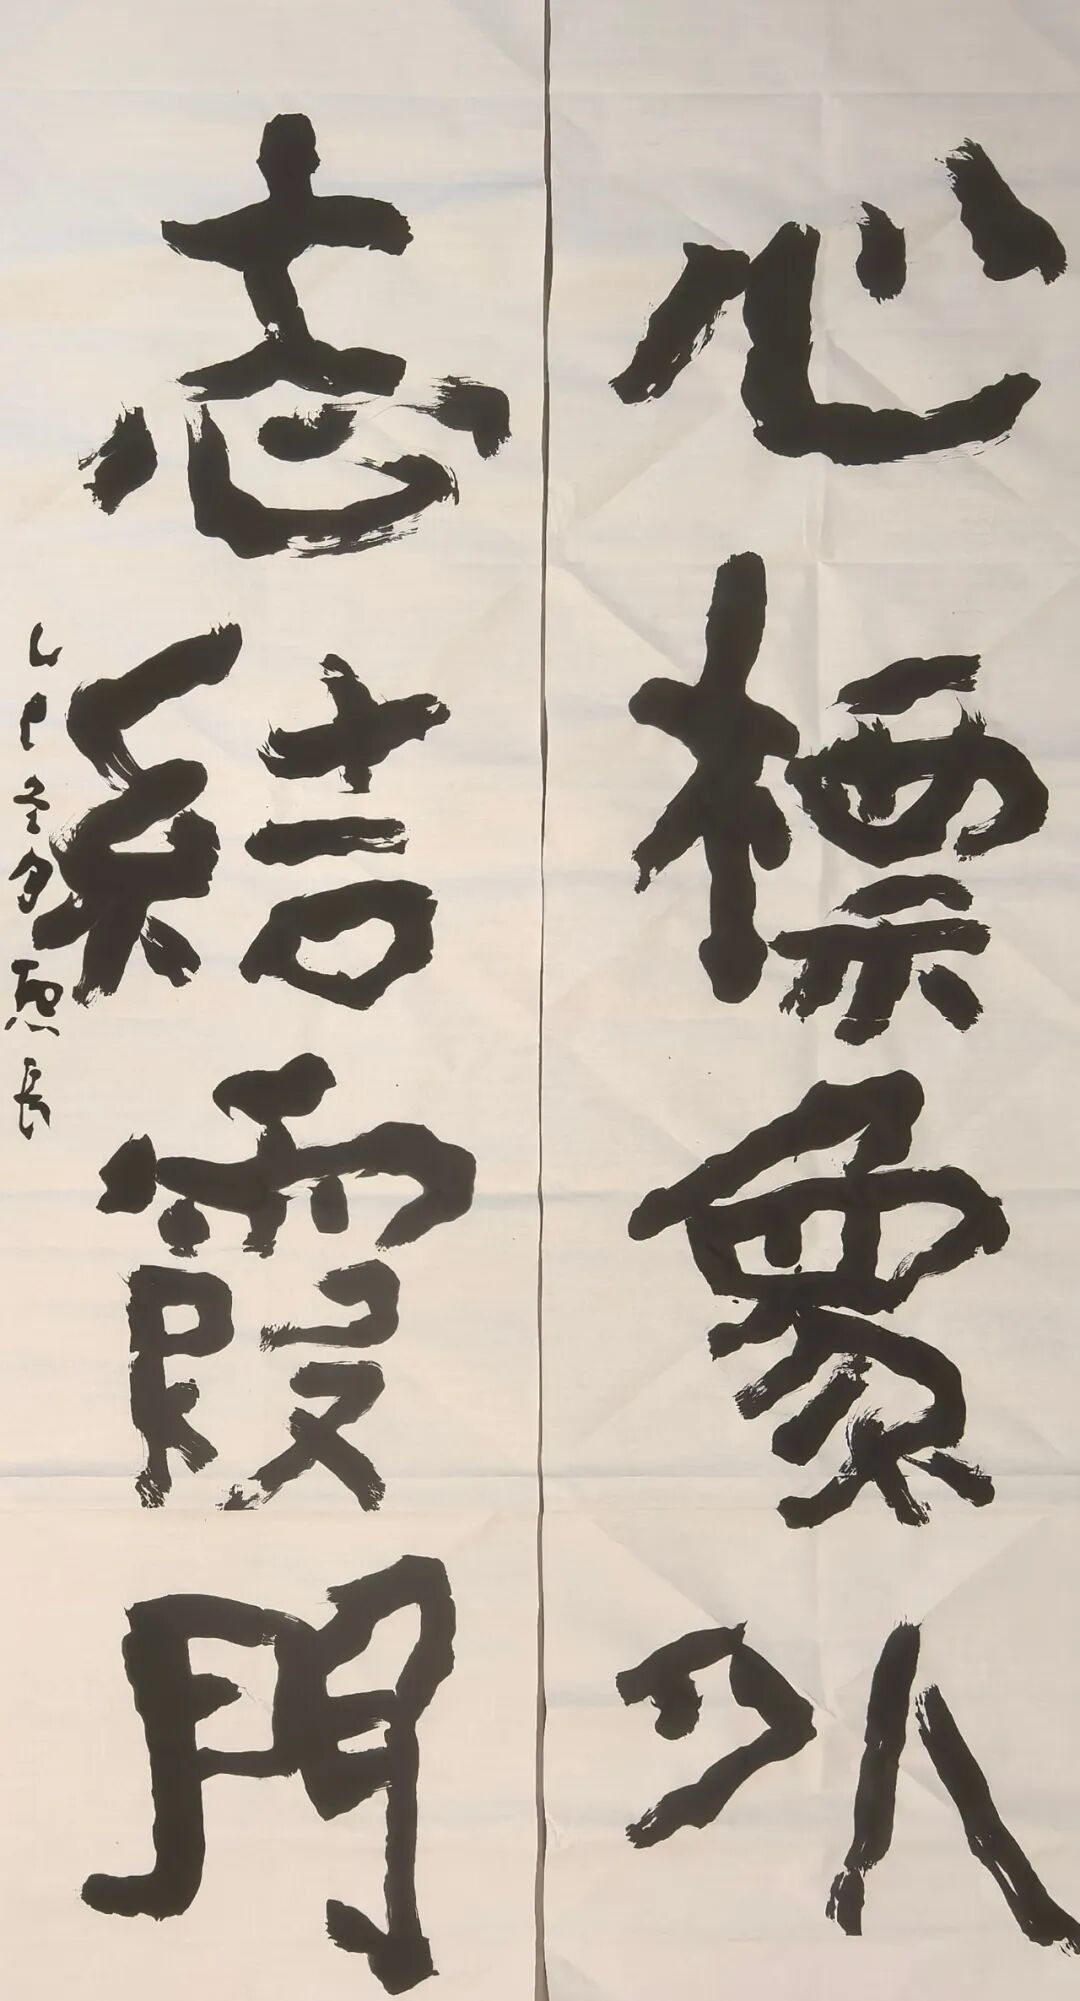 心標象外
志結霞門
乙巳冬月思長